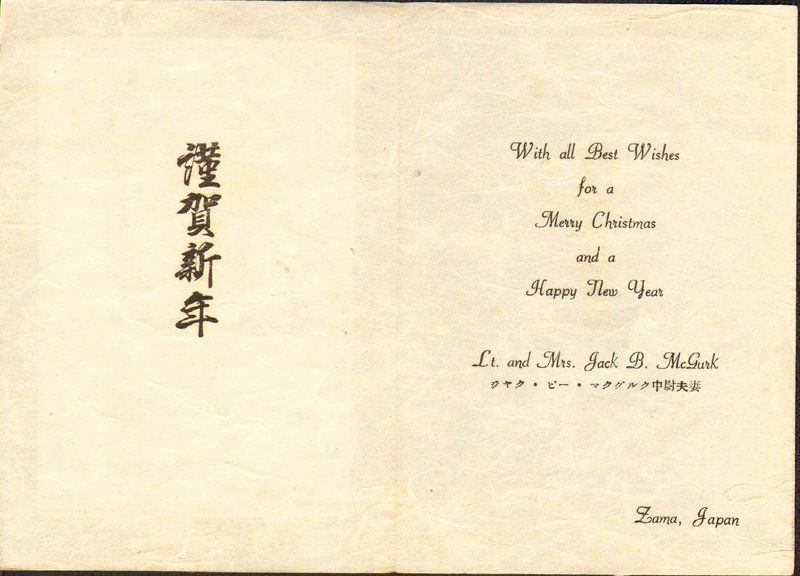 謹賀新年
With all Best Wishes
for a
Merry Christmas
and a
Happy New Year
Lt. and Mrs. Jack B. McGurk
ジヤク・ビー・マクグルク中尉夫妻
Zama, Japan